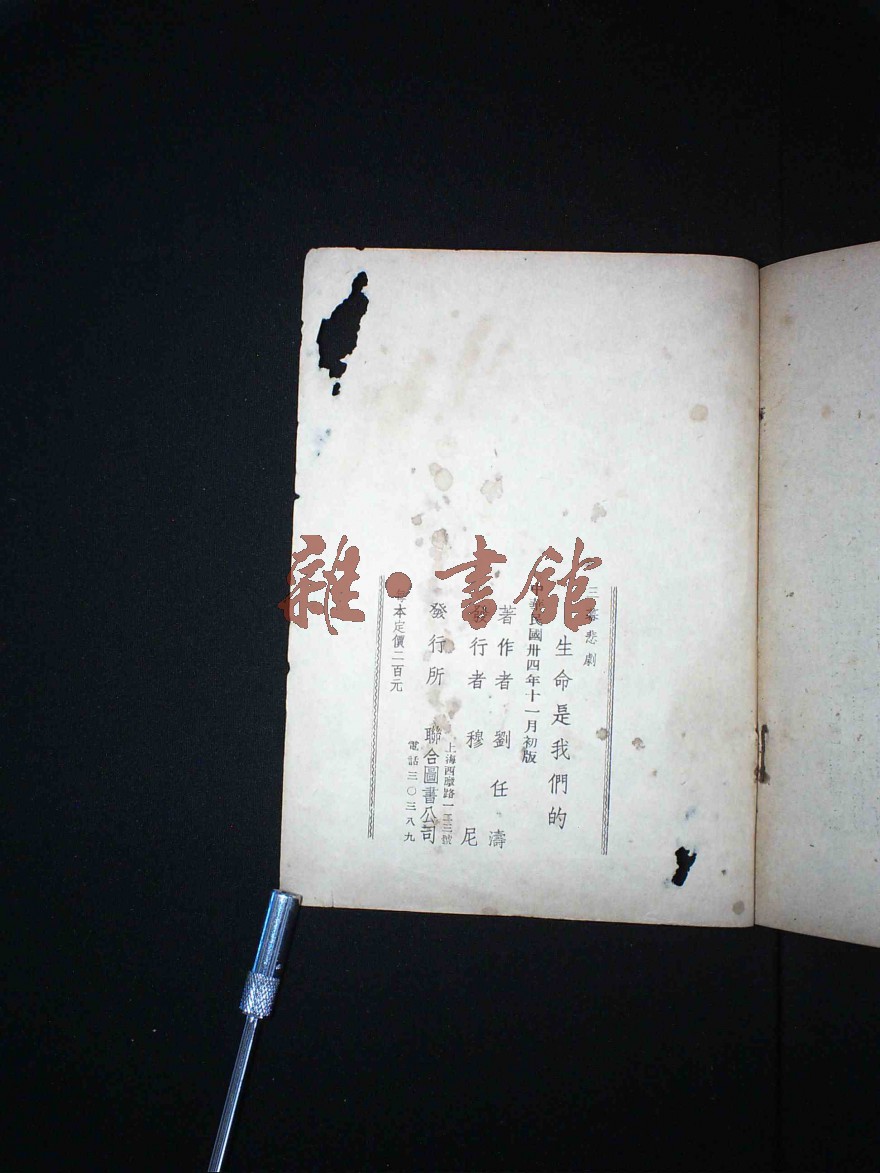 三幕悲劇
生命是我們的
中華民國卅四年十一月初版
著作者 劉任濤
發行者 穆尼
發行所 聯合圖書公司
上海西摩路一五三號
電話三〇三八九
每本定價二百元
雜·書館